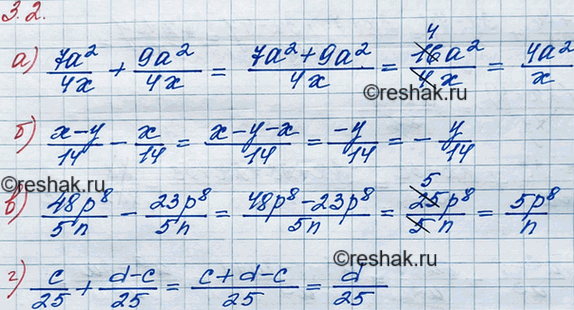 3.2.
а) 7a²/4x + 9a²/4x = (7a²+9a²)/4x = 4 16a²/4x = 4a²/x
©reshak.ru
б) (x-y)/14 - x/14 = (x-y-x)/14 = -y/14 = - y/14
©reshak.ru
в) 48p⁸/5n - 23p⁸/5n = (48p⁸-23p⁸)/5n = 5 25p⁸/5n = 5p⁸/n
г) c/25 + (d-c)/25 = (c+d-c)/25 = d/25
©reshak.ru